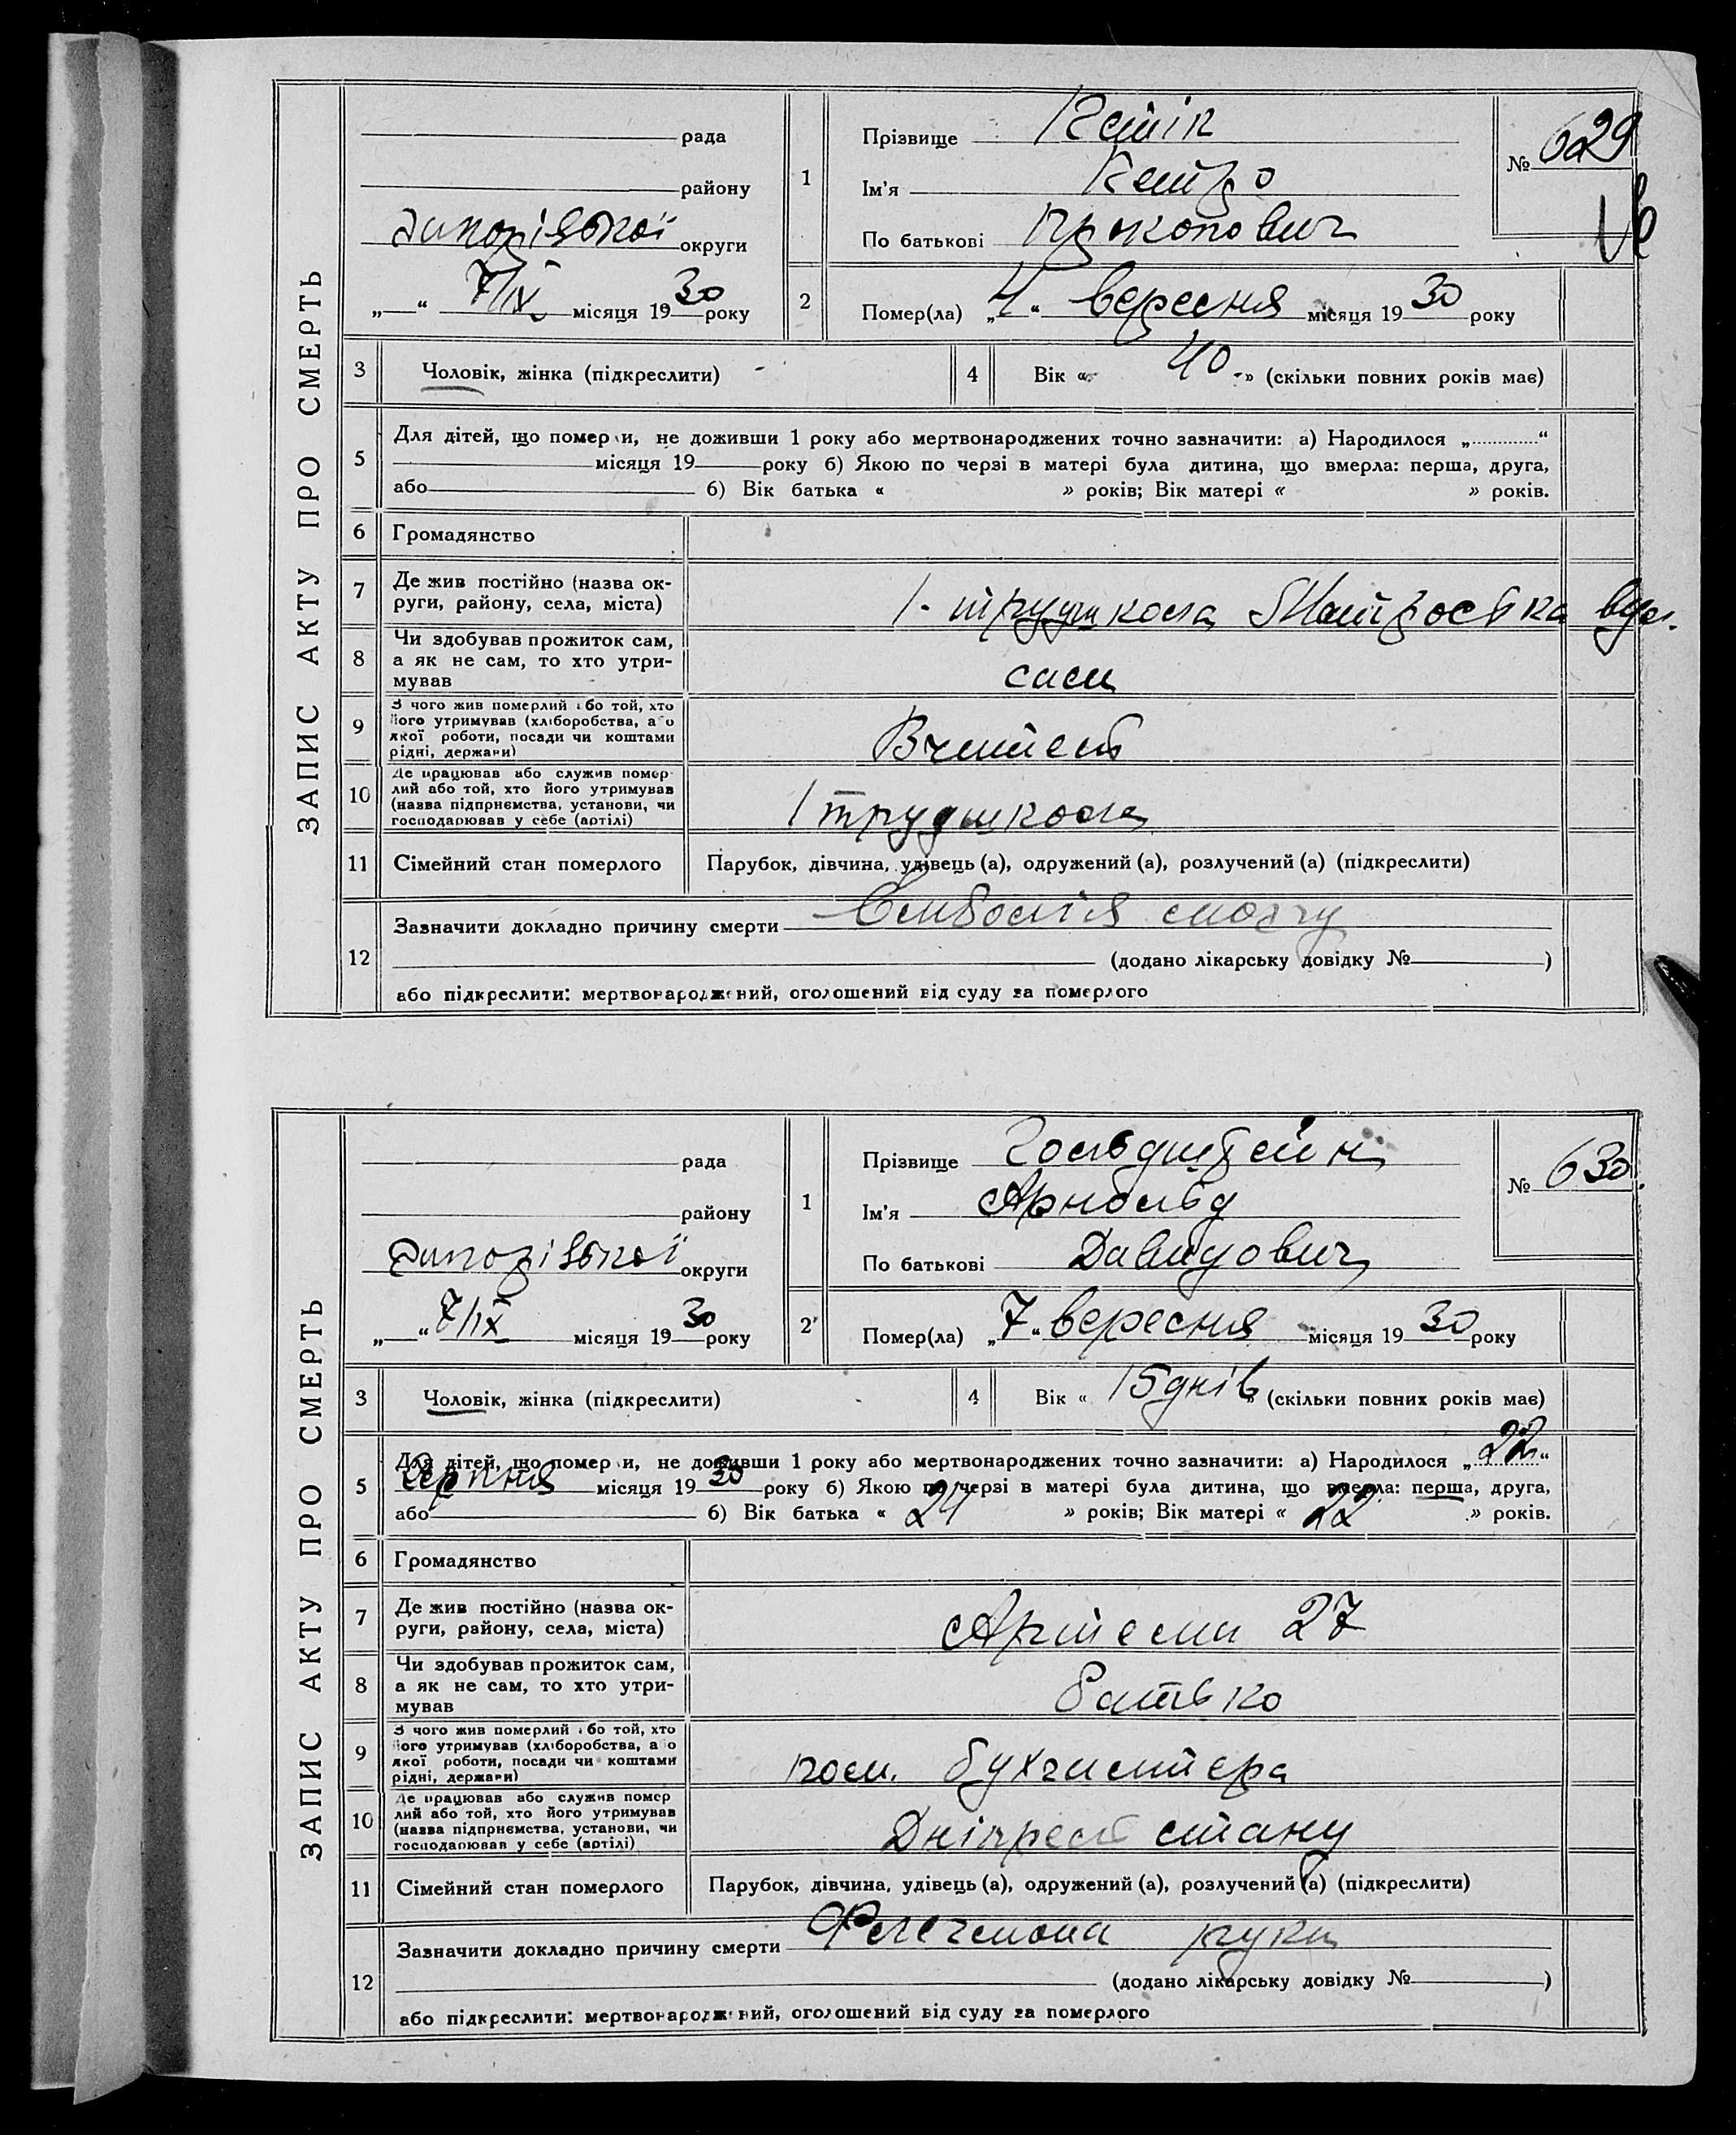 ЗАПИС АКТУ ПРО СМЕРТЬ
рада
району
Запорізької округи
„ “ 7/ІХ місяця 1930 року
1
Прізвище
Ім'я Петро
По батькові Прокопович
№ 629
2
Помер(ла) „4“ вересня місяця 1930 року
3
Чоловік, жінка (підкреслити)
4
Вік « 40 » (скільки повних років має)
5
Для дітей, що померли, не доживши 1 року або мертвонароджених точно зазначити: а) Народилося „ “
місяця 19 року б) Якою по черзі в матері була дитина, що вмерла: перша, друга,
або б) Вік батька « » років; Вік матері « » років.
6
Громадянство
7
Де жив постійно (назва ок-
руги, району, села, міста)
1. трудшкола Матросівка вул.
8
Чи здобував прожиток сам,
а як не сам, то хто утри-
мував
сам
9
З чого жив померлий або той, хто
його утримував (хліборобства, або
якої роботи, посади чи коштами
рідні, держави)
Вчитель
10
Де працював або служив помер-
лий або той, хто його утримував
(назва підприємства, установи, чи
господарював у себе (артілі)
1 трудшкола
11
Сімейний стан померлого
Парубок, дівчина, удівець (а), одружений (а), розлучений (а) (підкреслити)
12
Зазначити докладно причину смерти Емболія мозгу
(додано лікарську довідку № )
або підкреслити: мертвонароджений, оголошений від суду за померлого
ЗАПИС АКТУ ПРО СМЕРТЬ
рада
району
Запорізької округи
„ “ 7/ІХ місяця 1930 року
1
Прізвище Гольдштейн
Ім'я Арнольд
По батькові Давидович
№ 630.
2
Помер(ла) „7“ вересня місяця 1930 року
3
Чоловік, жінка (підкреслити)
4
Вік « 15 днів » (скільки повних років має)
5
Для дітей, що померли, не доживши 1 року або мертвонароджених точно зазначити: а) Народилося „22“
Серпня місяця 1930 року б) Якою по черзі в матері була дитина, що вмерла: перша, друга,
або б) Вік батька « 24 » років; Вік матері « 22 » років.
6
Громадянство
7
Де жив постійно (назва ок-
руги, району, села, міста)
Артема 27
8
Чи здобував прожиток сам,
а як не сам, то хто утри-
мував
батько
9
З чого жив померлий або той, хто
його утримував (хліборобства, або
якої роботи, посади чи коштами
рідні, держави)
пом. бухгалтера
10
Де працював або служив помер
лий або той, хто його утримував
(назва підприємства, установи, чи
господарював у себе (артілі)
11
Сімейний стан померлого
Парубок, дівчина, удівець (а), одружений (а), розлучений (а) (підкреслити)
12
Зазначити докладно причину смерти Флегмона руки
(додано лікарську довідку № )
або підкреслити: мертвонароджений, оголошений від суду за померлого